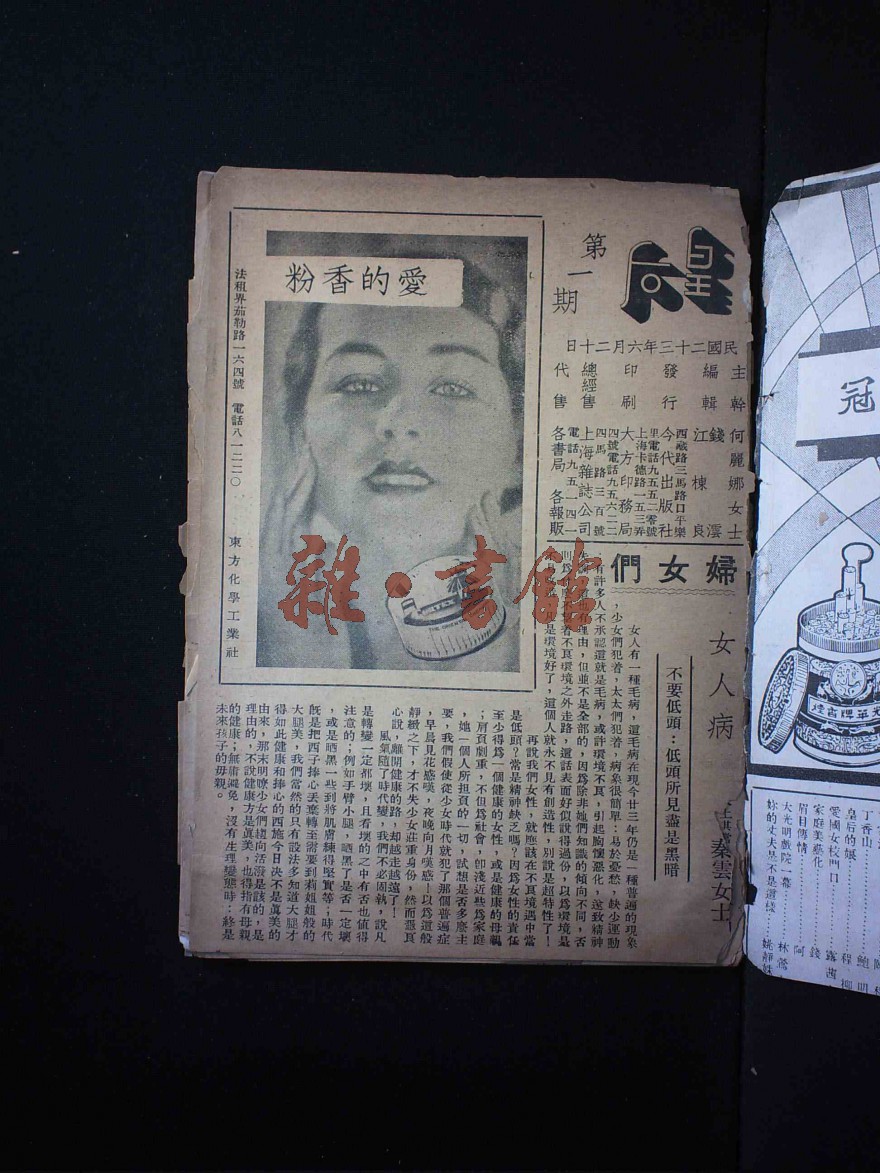 皇后
第一期
民國二十三年六月二十日
主幹 何麗娜女士
編輯 錢雲
江棟良
發行 今代出版社
西藏路三馬路口平樂
里電話九五二零號
印刷 大方印務局
上海卡德路一五三弄
四號電話九五六二二
總經售 上海雜誌公司
四馬路三百號
電話九五一四一
代售 各書局 各報販
愛的香粉
法租界茄勒路一六四號 電話八一二二〇 東方化學工業社
婦女們
女人病
秦雲女士
不要低頭:低頭所見盡是黑暗
女人有一種毛病,這毛病在現今廿三年仍是一種普遍的現象
,少女們犯着,太太們犯着,病象很簡單:易於憂愁,缺少運動
有許多人不承認這就是毛病,或許環境不良,引起胸懷惡化,遂致精神
理由,但並不是全部的,因爲除非她們知識的傾向不同,否
不良環境之外走路,這話表面好似說得過份,以爲環境是
是環境好了,這個人就永不見有創造性,別說是超特性了!
再說我們女性,就應該在不良境遇中當
是低頭?常是精神缺乏嗎?因爲女性的責任
至少得爲一個健康的女性,或是健康的母親
;肩頁劇重,不但爲社會,卽淺近些爲家庭
,她一個人所担負的一切,試想是否多麽主
要,我們假使從少女時代就犯了那個普遍症
,早晨見花感嘆,夜晚向月嘆惑!以爲這般
靜緻之下,才不失少女莊重身份,然而懇頁
心說,離開健康的路,却越走越遠了!
風氣隨了時代變,我們不必固執,說凡
是轉變一定都壞,且看壞的之中有否也值得
注意的;例如手臂小腿,晒黑了是否一定壞
,或是晒黑一些到將肌膚練得堅實等;時代
旣是把西子捧心丟棄轉至需要到莉妲般的
大腿美,我們當然的只有設法多知道大腿才
得如此健康和捧心的西施今日決不是眞美的
由來,那末明瞭少女們趨向活潑是該的,是
理由的,不說健康方是眞美,也得指有母親
的健康;無術避免,沒有生理變態時:終是
未來孩子的母親。
冠
丁香山
皇后的娘
愛國女校門口
家庭美藝化
眉目傳情
大光明戲院一幕
妳的丈夫是不是這樣
程柳
露茜
錢
阿
林鶯
姚靜
雜·書館